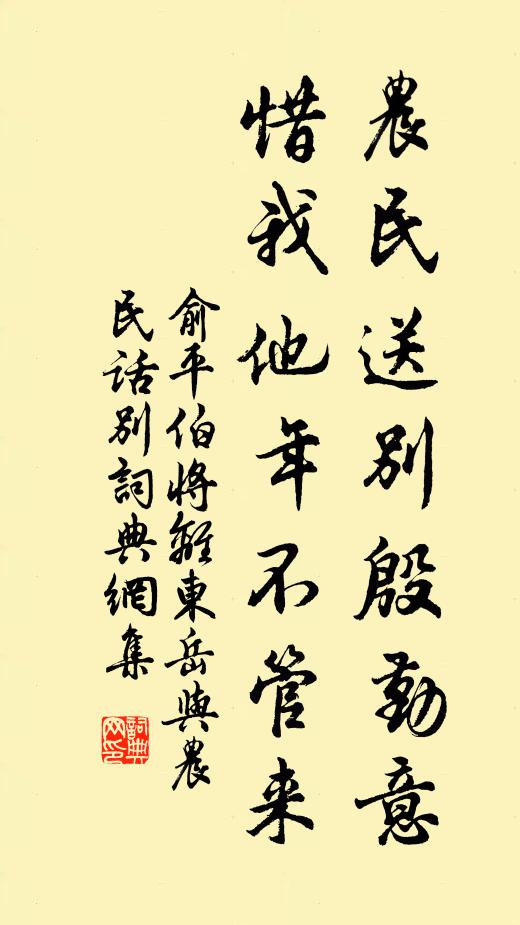 農民送別殷勤意
惜我他年不管来
俞平伯將離東岳與農
民話別詞典網集
詞典
网印